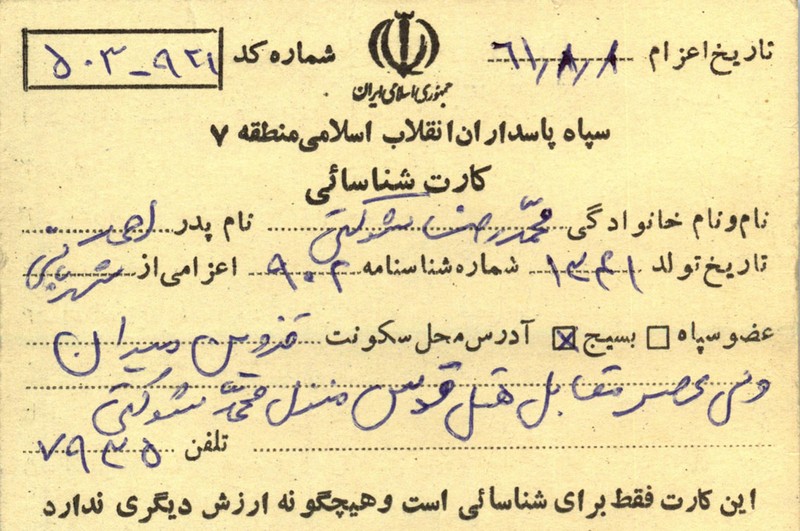 تاریخ اعزام ۶۱/۸/۸ شماره کد ۵۰۳-۹۲۱
جمهوری اسلامی ایران
سپاه پاسداران انقلاب اسلامی منطقه ۷
کارت شناسائی
نام ونام خانوادگی محمدرضا شوکتی نام پدر
تاریخ تولد ۱۳۴۱ شماره شناسنامه ۹۰۲ اعزامی از
عضو سپاه بسیج آدرس محل سکونت قزوین میدان
ولی عصر مقابل هتل قدس منزل محمد شوکتی
تلفن ۷۹۳۵
این کارت فقط برای شناسائی است وهیچگونه ارزش دیگری ندارد